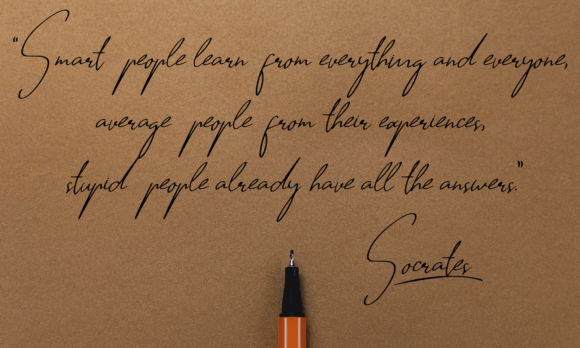 "Smart people learn from everything and everyone,
average people from their experiences,
stupid people already have all the answers."
Socrates